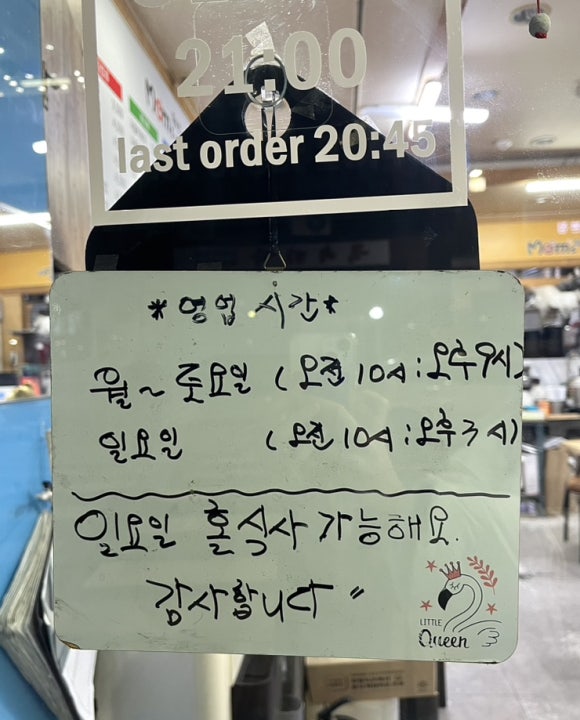 21:00
last order 20:45
*영업 시간*
월~토요일 (오전10시:오후9시)
일요일 (오전10시:오후3시)
일요일 홀식사 가능해요.
감사합니다"
LITTLE
Queen